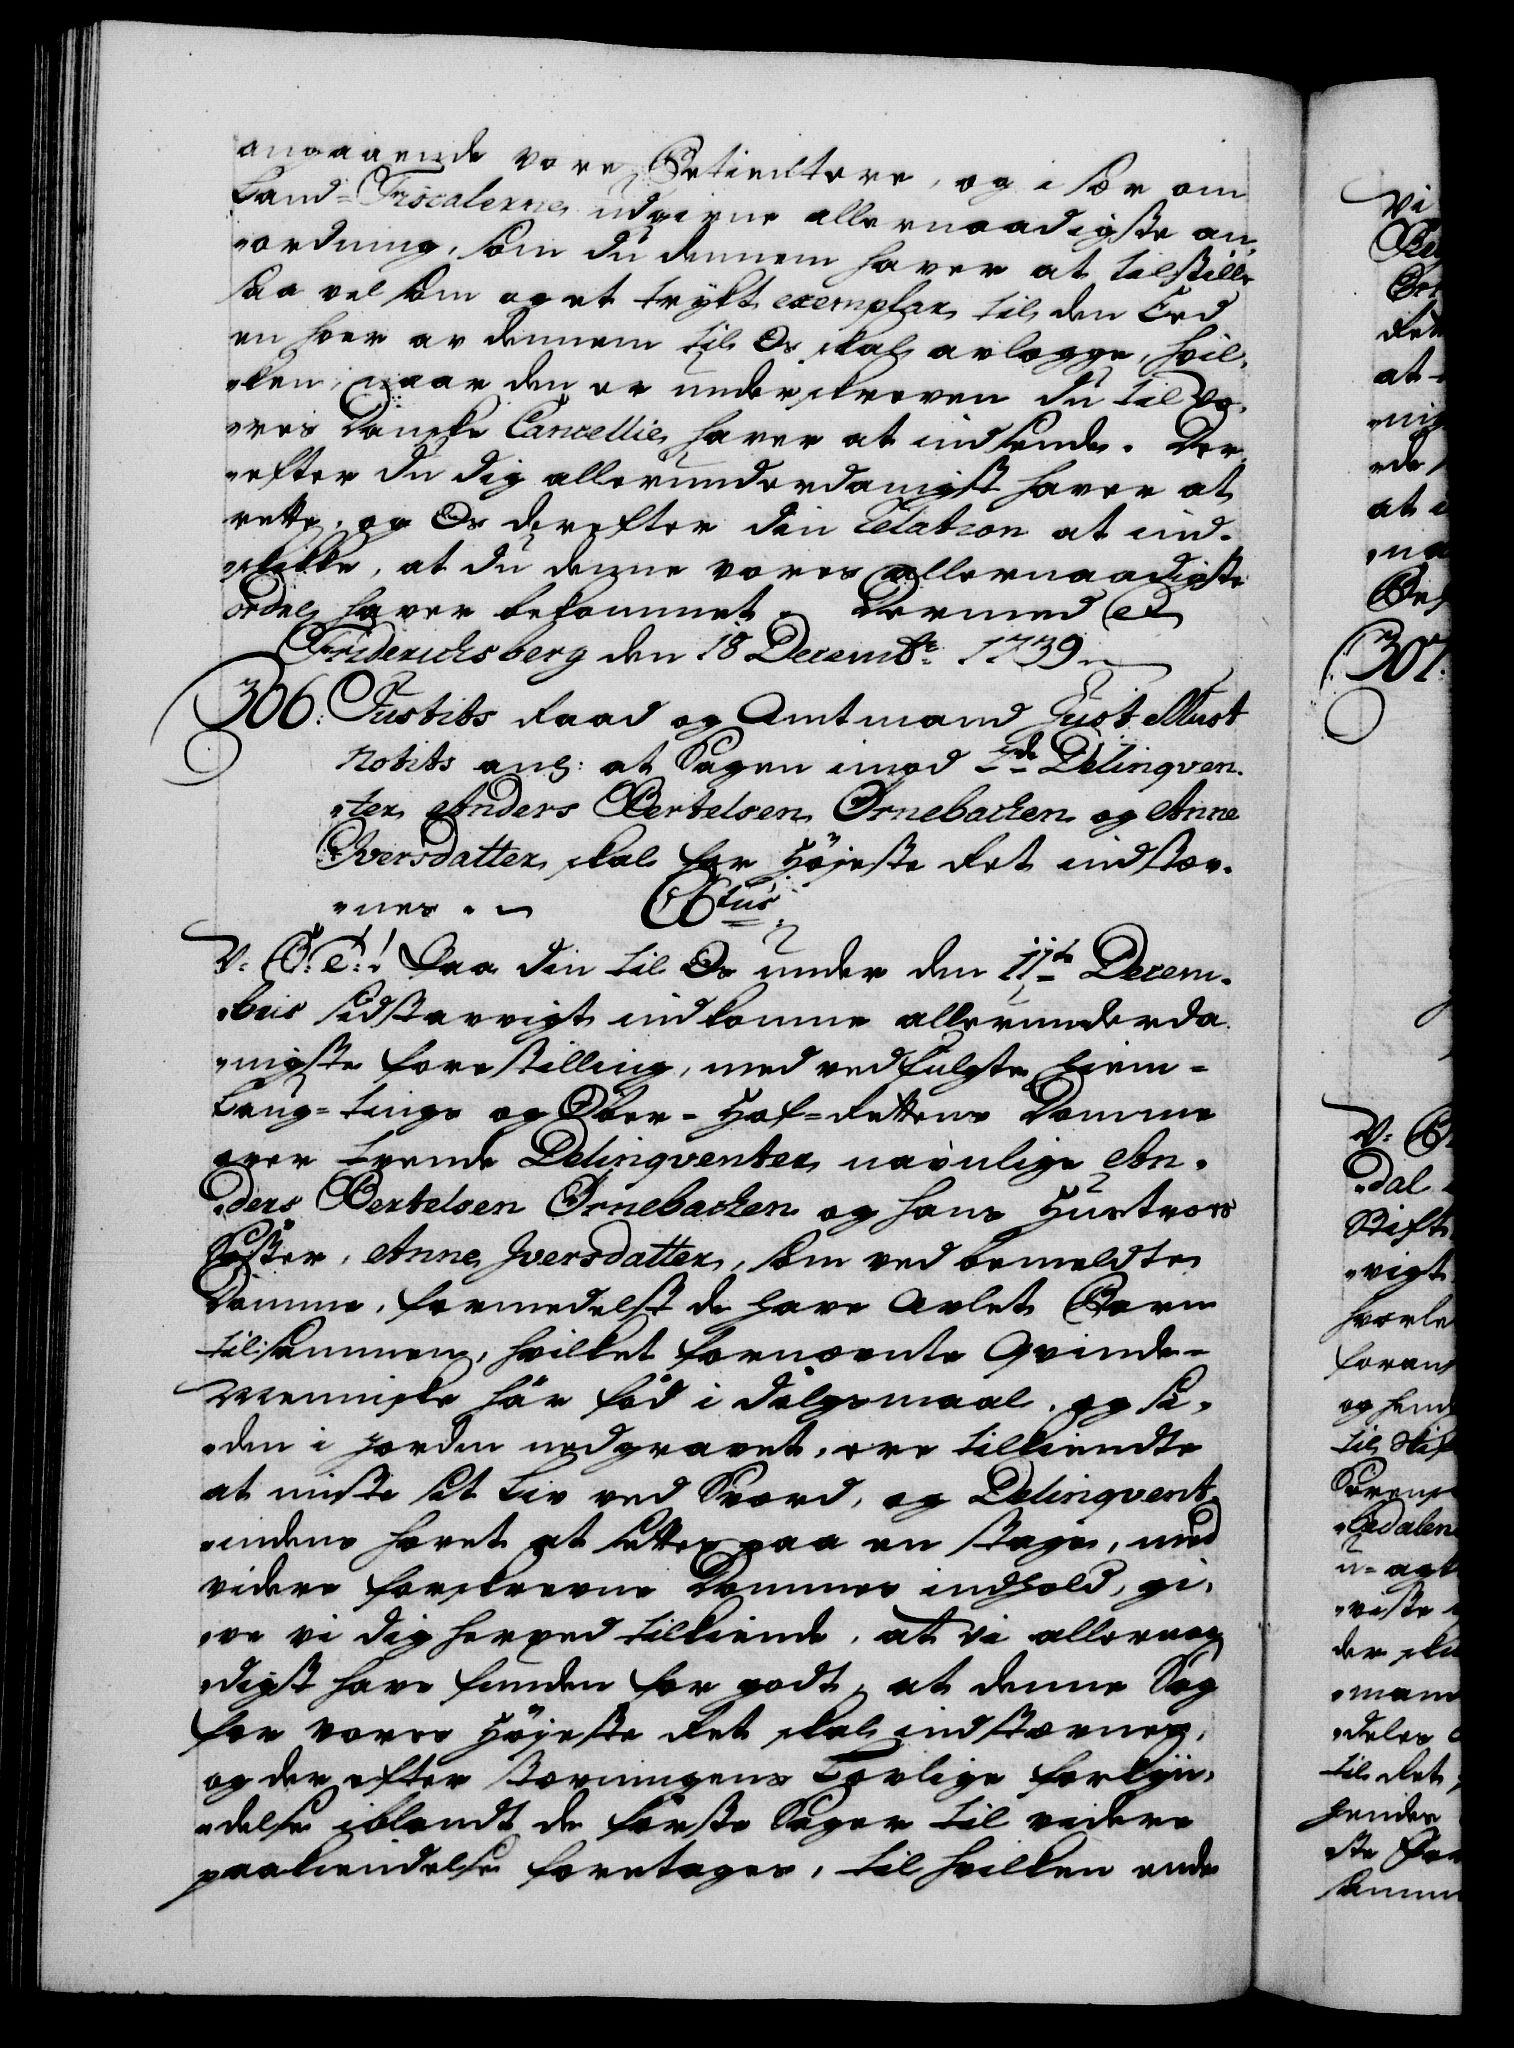 angaaende vore Betientere, og i sær om
Land-Fiscalerne udgivne allernaadigste an-
ordning, som du dennem haver at tilstille
saa vel som og et trykt exemplar til den Eed
en hver av dennem til Os skal avlægge, hvil-
ken, naar den er underskreven du til vo-
res Danske Cancellie haver at indsende. Der-
efter du dig allerunderdanigst haver at
rette, og Os derefter din Relation at ind-
skikke, at du denne vores allernaadigste
ordre haver bekommet. Dermed etc
Friderichsberg den 18 Decembr: 1739.
306. Justits Raad og Amtmand Just Must
Notits ang: at Sagen imod 2de Delinqven-
ter Anders Bertelsen Ørnebachen og Anne
Iversdatter skal for Høyeste Ret indstæv-
nes. Ctus:
V: G: T:! Saa din til Os under den 11te Decem-
bris sidstavvigt indkomne allerunderda-
nigste forestilling, med vedfulgte hiem-
Laug-tings og Ober-Hof-Rettens Domme
over tvende Delinqventer navnlige An-
ders Bertelsen Ørnebachen og hans Hustroes
Søster, Anne Iversdatter, som ved bemeldte
Domme, formedelst de have Avlet Barn
tilsammen, hvilket fornævnte Qvinde-
Menniske har fød i dølgsmaal, og si-
den i Jorden nedgravet, ere tilkiendte
at miste sit Liv ved Sværd, og Delinqvent-
indens hovet at settes paa en stage, med
videre forskrevne Dommes indhold, gi-
ve vi dig herved tilkiende, at vi allernaa-
digst have funden for godt, at denne Sag
for vores Høyeste Ret skal indstævnes,
og der efter stævningens Lovlige forkyn-
delse iblandt de første Sager til videre
paakiendelse foretages, til hvilken ende